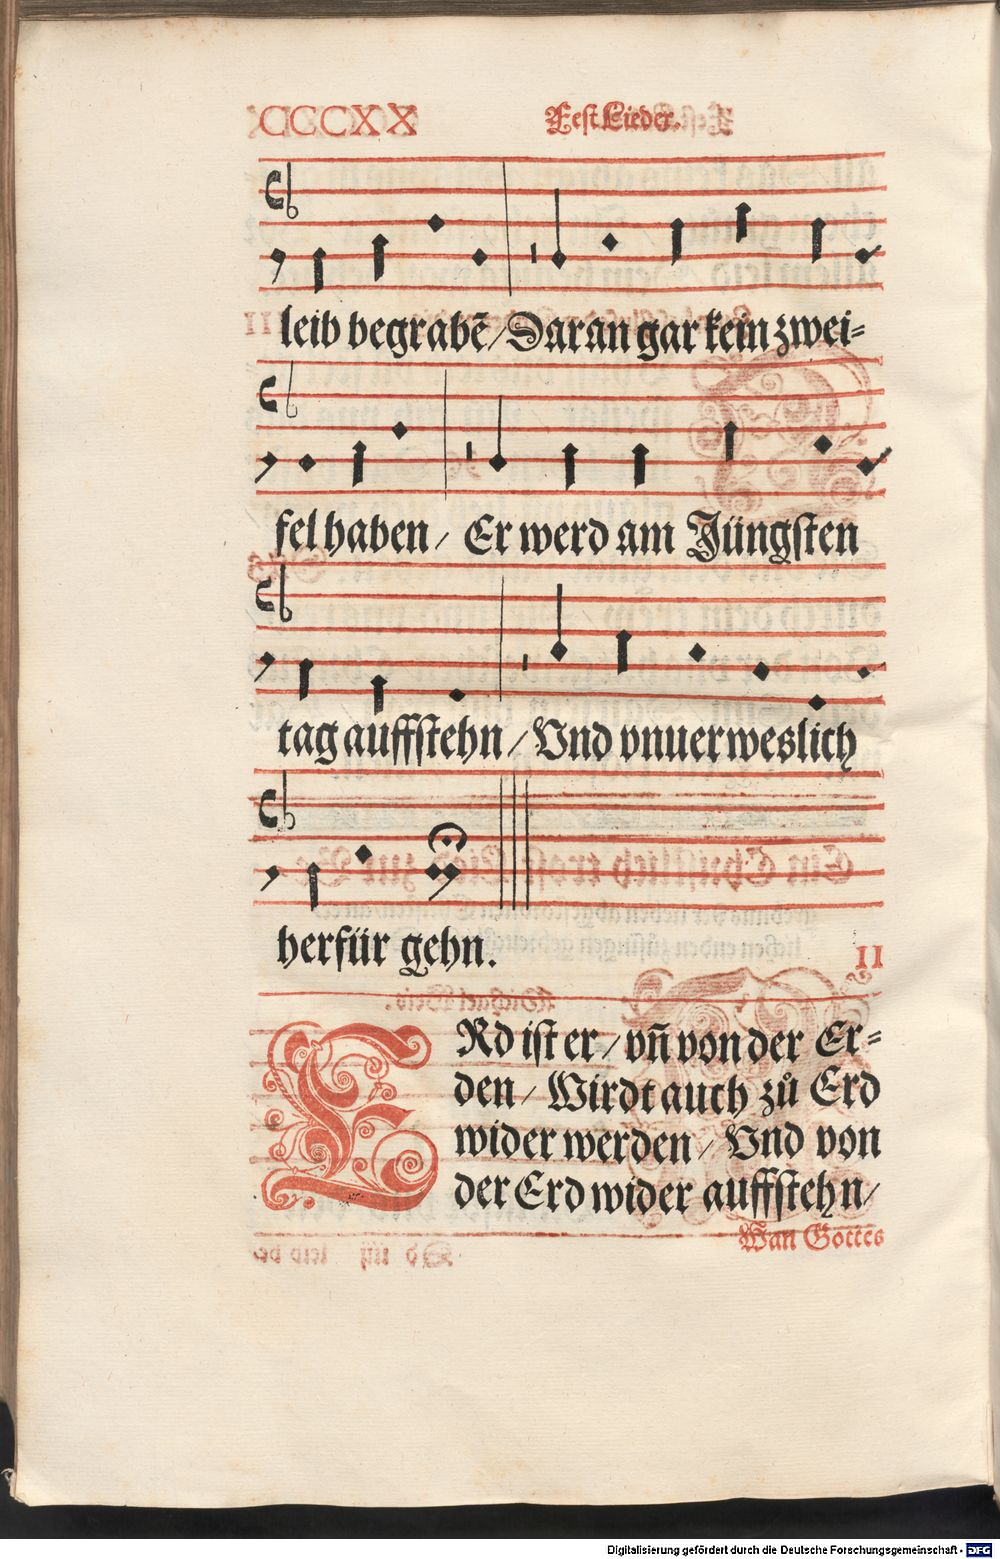 CCCCXX Fest Lieder.
leib begrabē/ Daran gar kein zwei-
fel haben/ Er werd am Jüngsten
tag auffstehn/ Vnd vnuerweslich
herfür gehn.
II
ERd ist er/ vñ von der Er-
den/ Wirdt auch zů Erd
wider werden/ Vnd von
der Erd wider auffstehn/
Wan Gottes
Digitalisierung gefördert durch die Deutsche Forschungsgemeinschaft - DFG